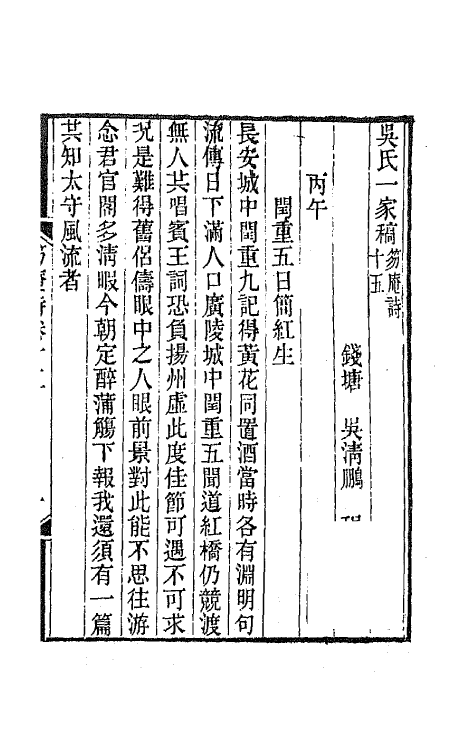 吳氏一家稿 笏庵詩十五
錢塘 吳清鵬
丙午
閏重五日簡紅生
長安城中閏重九記得黃花同置酒當時各有淵明句
流傳日下滿人口廣陵城中閏重五聞道紅橋仍競渡
無人共唱賓王詞恐負揚州虛此度佳節可遇不可求
況是難得舊侶儔眼中之人眼前景對此能不思往游
念君官閣多清暇今朝定醉蒲觴下報我還須有一篇
共知太守風流者